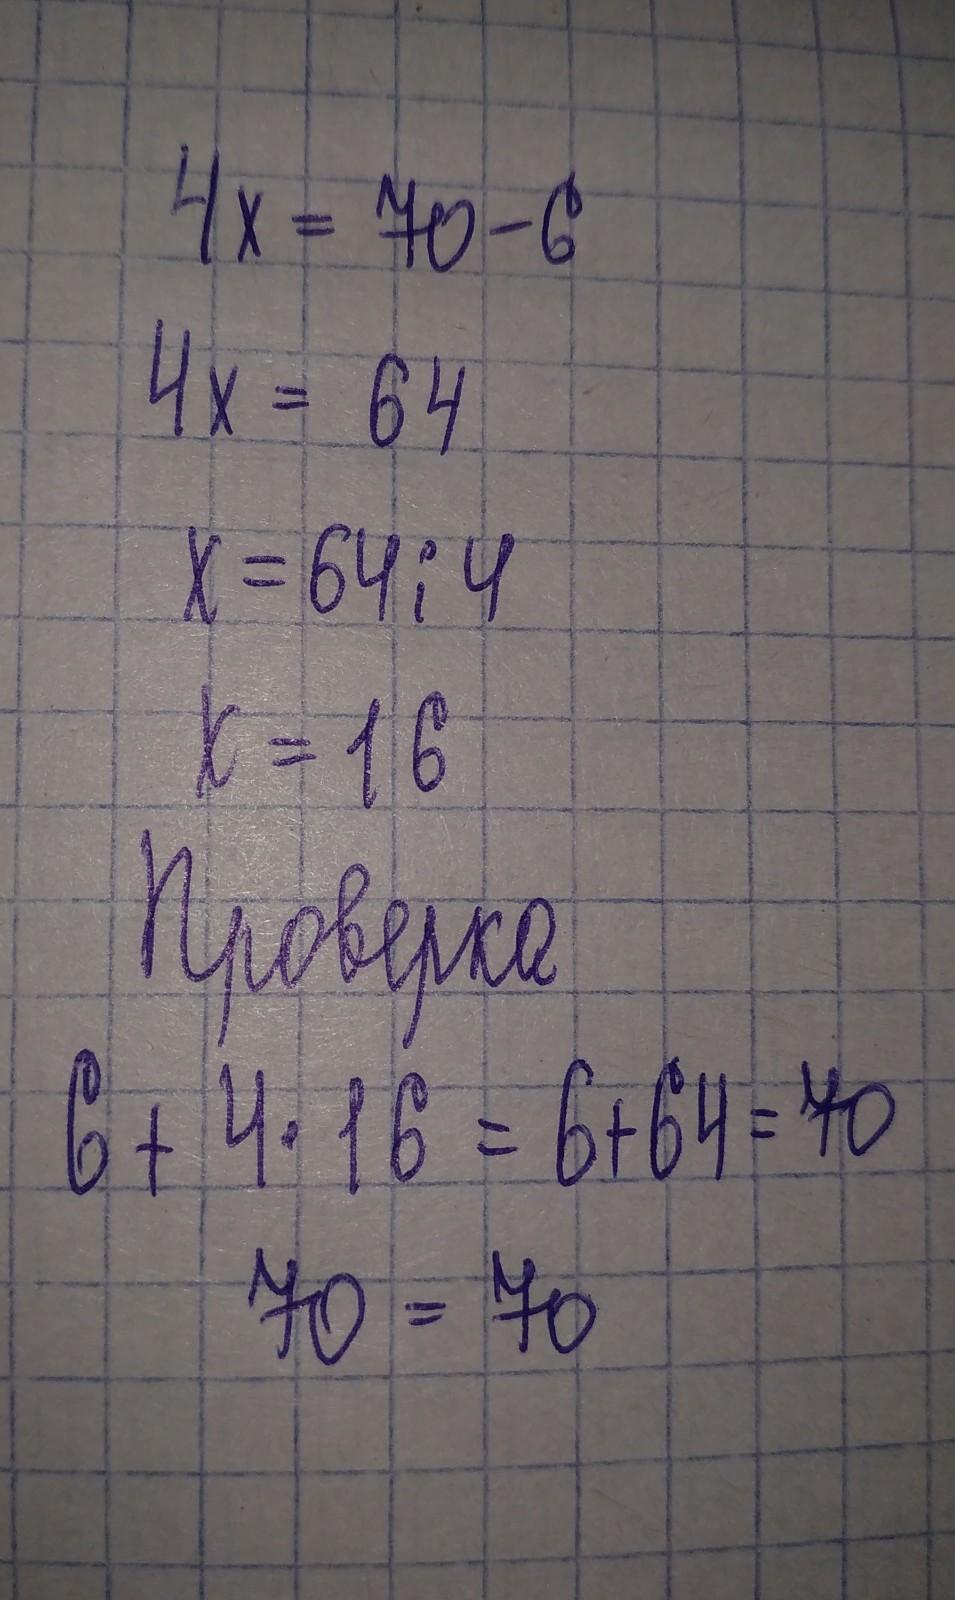 4x = 70 - 6
4x = 64
x = 64 : 4
x = 16
Проверка
6 + 4 · 16 = 6 + 64 = 70
70 = 70